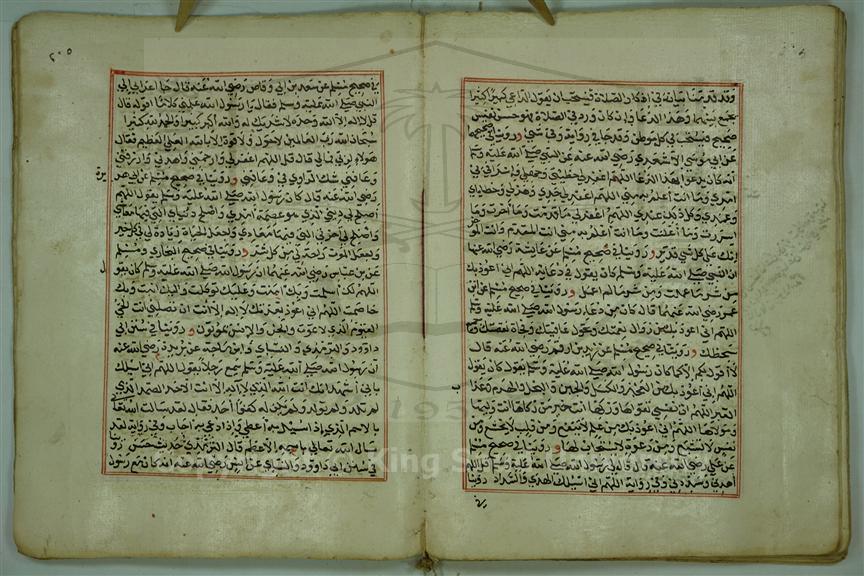 وقد قدمنا بيانه في اذكار الصلاة فيستحب ان يقول الداعي كبيرا كثيرا
يجمع بينهما وهذا الدعا وان كان ورد في الصلاة فهو حسن نفيس
صحيح فيستحب في كل موطن وقد جا في رواية وفي بيتي وروينا في صحيحهما
عن ابي موسى الاشعري رضي الله عنه عن النبي صلى الله عليه وسلم
انه كان يدعو بهذا الدعا اللهم اغفر لي خطيئتي وجهلي واسرافي في
امري وما انت اعلم به مني اللهم اغفر لي جدي وهزلي وخطاي
وعمدي وكل ذلك عندي اللهم اغفر لي ما قدمت وما اخرت وما
اسررت وما اعلنت وما انت اعلم به مني انت المقدم وانت الموخر
انك على كل شي قدير وروينا في صحيح مسلم عن عائشة رضي الله عنها
ان النبي صلى الله عليه وسلم كان يقول في دعائه اللهم اني اعوذ بك
من شر ما عملت ومن شر ما لم اعمل وروينا في صحيح مسلم عن ابن
عمر رضي الله عنهما قال كان من دعا رسول الله صلى الله عليه وسلم
اللهم اني اعوذ بك من زوال نعمتك وتحول عافيتك وفجاة نقمتك وجميع
سخطك وروينا في صحيح مسلم عن زيد بن ارقم رضي الله عنه قال
لا اقول لكم الا كما كان رسول الله صلى الله عليه وسلم يقول كان يقول
اللهم اني اعوذ بك من العجز والكسل والجبن والبخل والهرم وعذاب
القبر اللهم ات نفسي تقواها وزكها انت خير من زكاها انت وليها
ومولاها اللهم اني اعوذ بك من علم لا ينفع ومن قلب لا يخشع ومن
نفس لا تشبع ومن دعوة لا يستجاب لها وروينا في صحيح مسلم
عن علي رضي الله عنه قال قال لي رسول الله صلى الله عليه وسلم قل اللهم
اهدني وسددني وفي رواية اللهم اني اسالك الهدى والسداد روينا
في
٢٠٥
في صحيح مسلم عن سعد بن ابي وقاص رضي الله عنه قال جا اعرابي الى
النبي صلى الله عليه وسلم فقال يا رسول الله علمني كلاما اقوله قال
قل لا اله الا الله وحده لا شريك له الله اكبر كبيرا والحمد لله كثيرا
سبحان الله رب العالمين لا حول ولا قوة الا بالله العلي العظيم فقال
هولاء لربي فما لي قال قل اللهم اغفر لي وارحمني واهدني وارزقني
وعافني شك الراوي في وعافني وروينا في صحيح مسلم عن ابي هر
يرة
رضي الله عنه قال كان رسول الله صلى الله عليه وسلم يقول اللهم
اصلح لي ديني الذي هو عصمة امري واصلح دنياي التي فيها معاشي
واصلح لي اخرتي التي فيها معادي واجعل الحياة زيادة لي في كل خير
واجعل الموت راحة لي من كل شر وروينا في صحيحي البخاري ومسلم
عن ابن عباس رضي الله عنهما ان رسول الله صلى الله عليه وسلم كان يقو
ل
اللهم لك اسلمت وبك امنت وعليك توكلت واليك انبت وبك
خاصمت اللهم اني اعوذ بعزتك لا اله الا انت ان تضلني انت الحي
القيوم الذي لا يموت والجن والانس يموتون وروينا في سنن ابي
داوود والترمذي والنسائي وابن ماجة عن بريدة رضي الله عنه
ان رسول الله صلى الله عليه وسلم سمع رجلا يقول اللهم اني اسالك
باني اشهد انك انت الله الذي لا اله الا انت الاحد الصمد الذي
لم تلد ولم يولد ولم يكن له كفوا احد فقال لقد سالت الله تعالى
بالاسم الذي اذا سئل به اعطى واذا دعي به اجاب وفي رواية لقد
سال الله تعالى باسمه الاعظم قال الترمذي حديث حسن وروينا
في سنن ابي داوود والنسائي عن انس رضي الله عنه انه كان مع رسول
King S
195